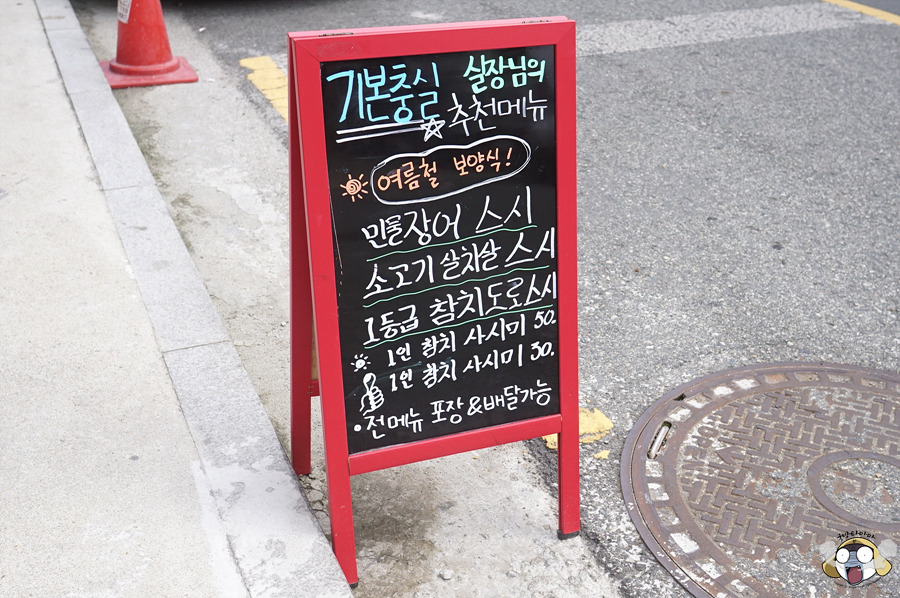 기본충실 실장님의
추천메뉴
여름철 보양식!
민물장어 스시
소고기 살치살 스시
1등급 참치도로스시
1인 참치 사시미 50.
1인 참치 사시미 30.
•전메뉴 포장&배달가능